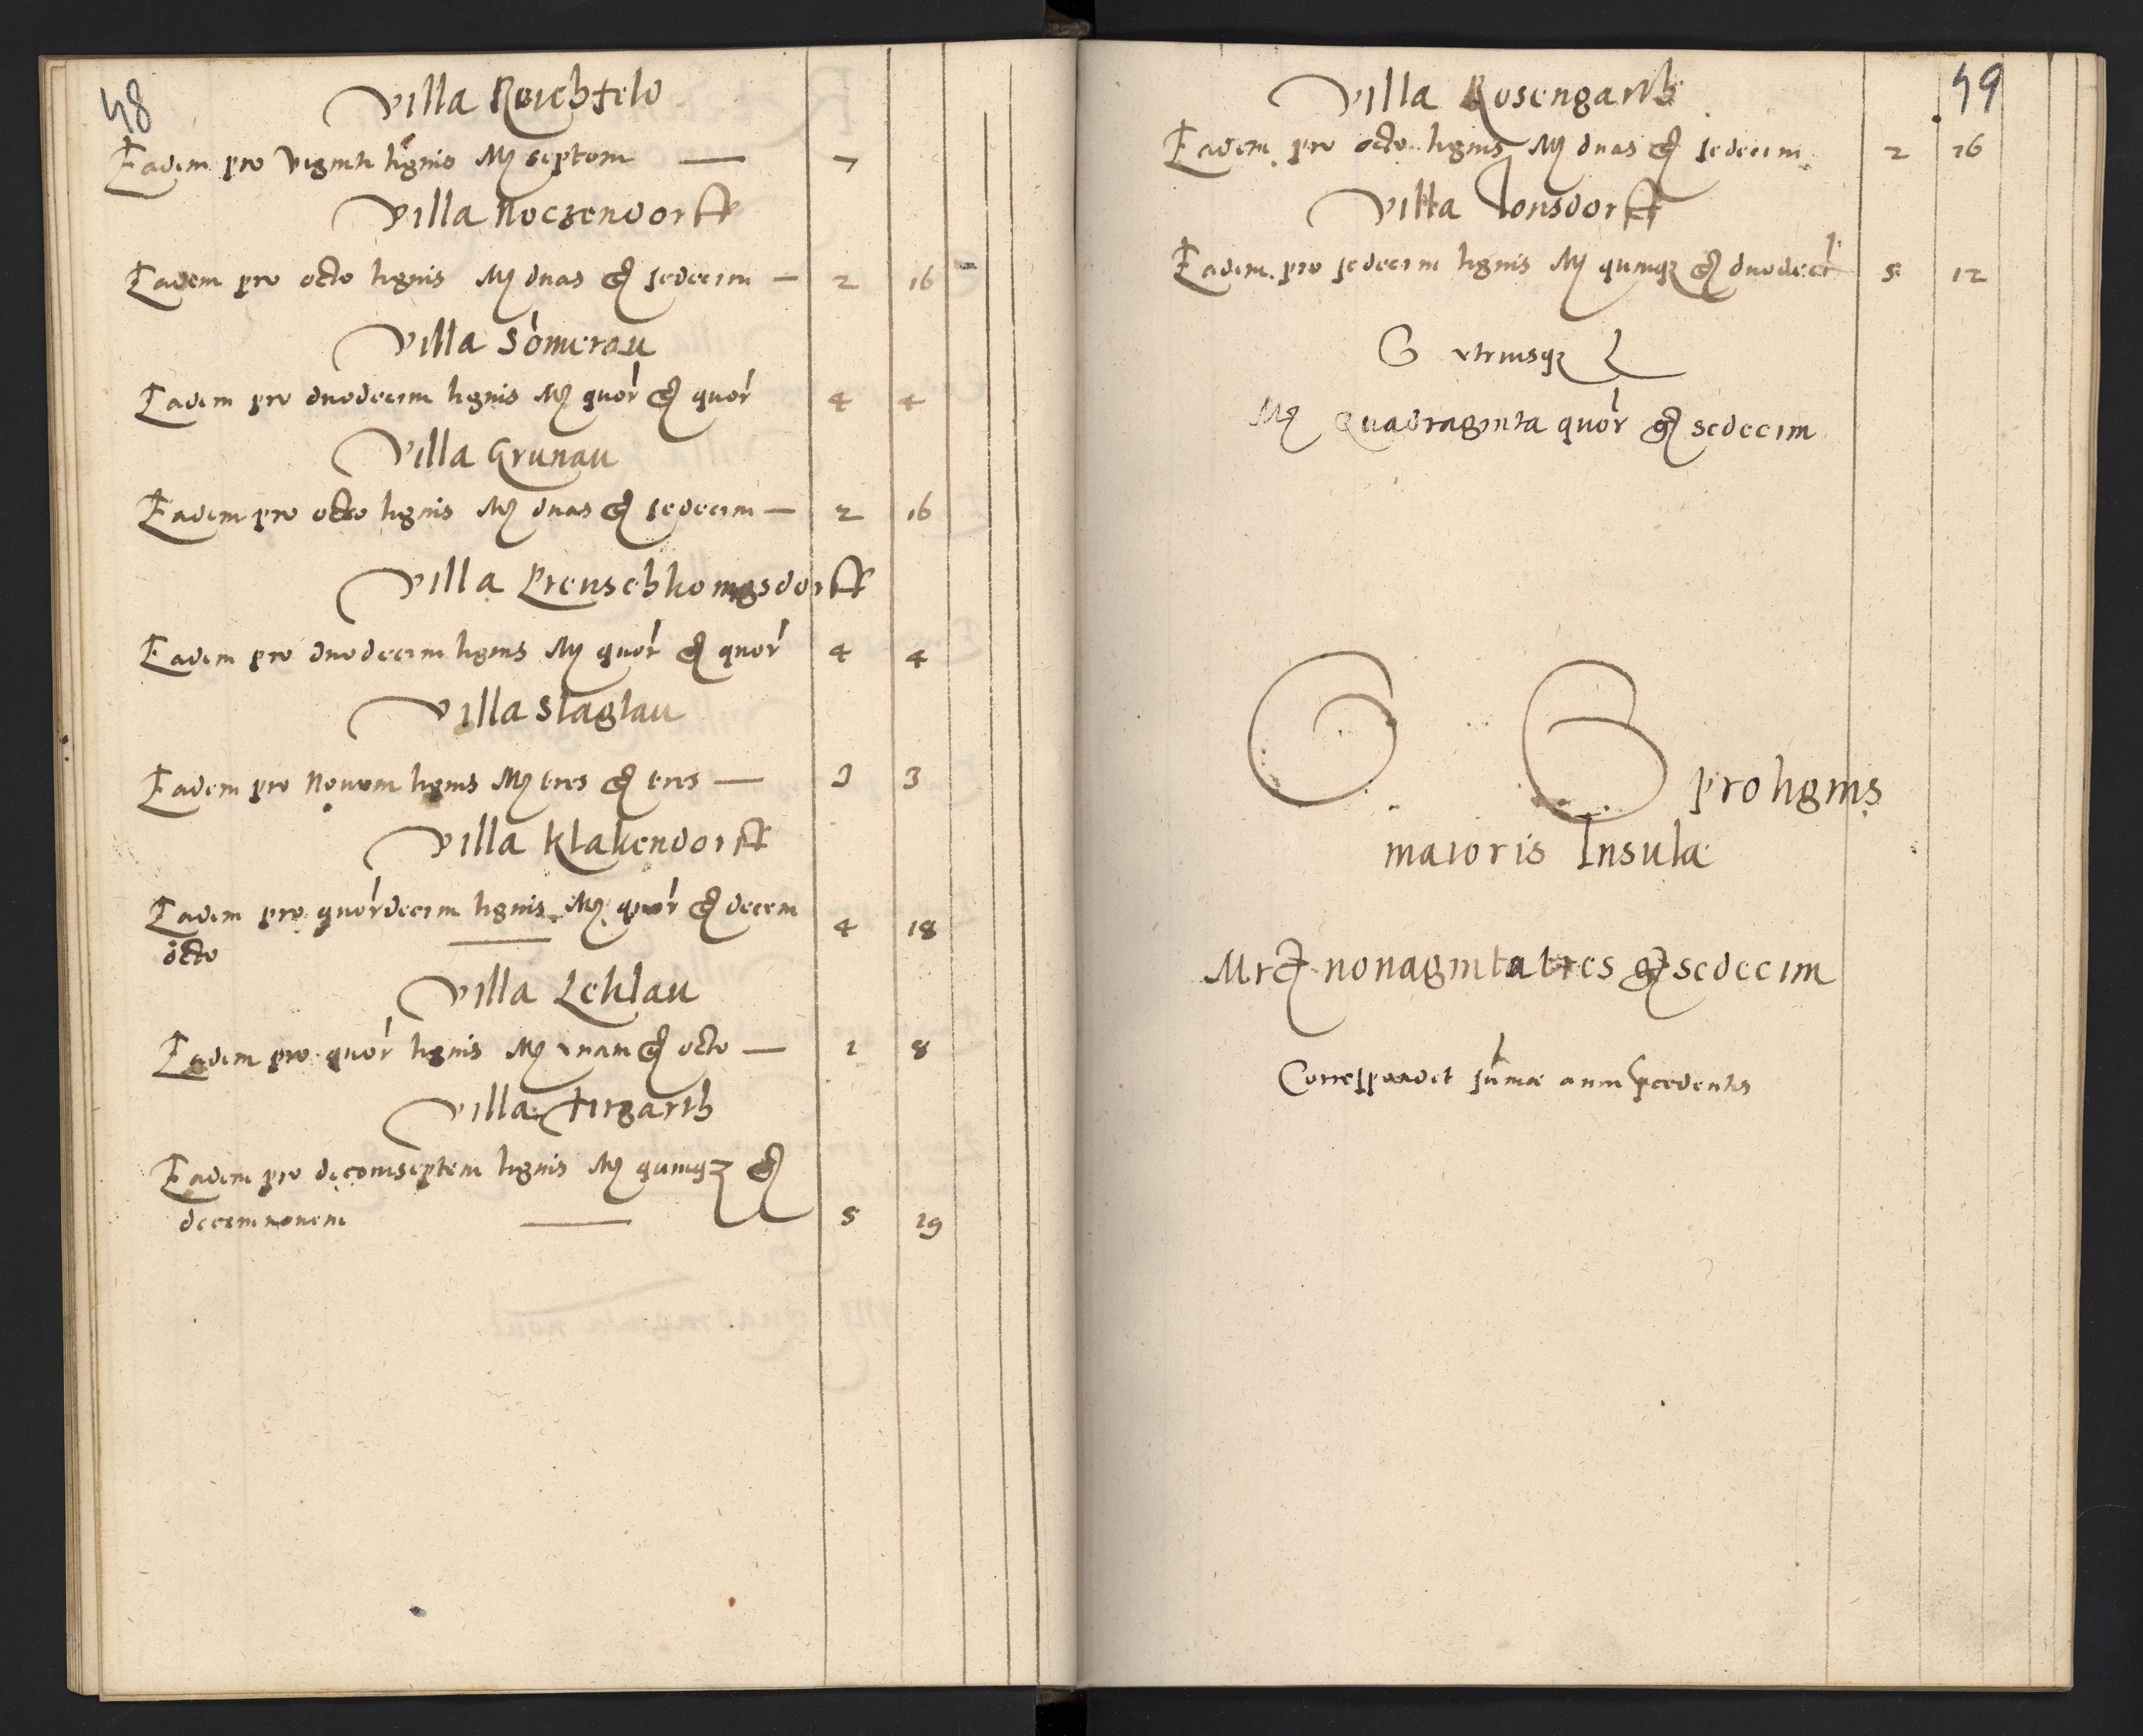 48
Villa Reichfeld
Eadem pro viginti lignis M septem — 7
Villa Noczendorff
Eadem pro octo lignis M duas g sedecim — 2 16
Villa Somerau
Eadem pro duodecim lignis M quor g quor 4 4
Villa Grunau
Eadem pro octo lignis M duas g sedecim — 2 16
Villa Preuschkonigsdorff
Eadem pro duodecim lignis M quor g quor 4 4
Villa Slaglau
Eadem pro Novem lignis M tres g tres — 3 3
Villa Klakendorff
Eadem pro quordecim lignis M quor g decem
octo — 4 18
Villa Leklau
Eadem pro quor lignis M unam g octo — 1 8
Villa Tirgarth
Eadem pro decemseptem lignis M quinq g
decemnovem — 5 19
49
Villa Rosengarth
Eadem pro octo lignis M duas g sedecim 2 16
Villa Jonsdorff
Eadem pro sedecim lignis M quinq g duodeci 5 12
utriusq
M Quadraginta quor g sedecim
pro lignis
maioris Insulæ
Mrc nonaginta tres g sedecim
Correspondet sumæ anni pcedentis